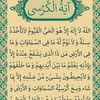 آيَةُ الْكُرْسِي
اللهُ لَا إِلَهَ إِلَّا هُوَ الْحَيُّ الْقَيُّومُ لَا تَأْخُذُهُ
سِنَةٌ وَلَا نَوْمٌ لَهُ مَا فِي السَّمَاوَاتِ وَمَا
فِي الْأَرْضِ مَنْ ذَا الَّذِي يَشْفَعُ عِنْدَهُ إِلَّا
بِإِذْنِهِ يَعْلَمُ مَا بَيْنَ أَيْدِيهِمْ وَمَا خَلْفَهُمْ
وَلَا يُحِيطُونَ بِشَيْءٍ مِنْ عِلْمِهِ إِلَّا بِمَا
شَاءَ وَسِعَ كُرْسِيُّهُ السَّمَاوَاتِ وَالْأَرْضَ
وَلَا يَئُودُهُ حِفْظُهُمَا وَهُوَ الْعَلِيُّ الْعَظِيمُ